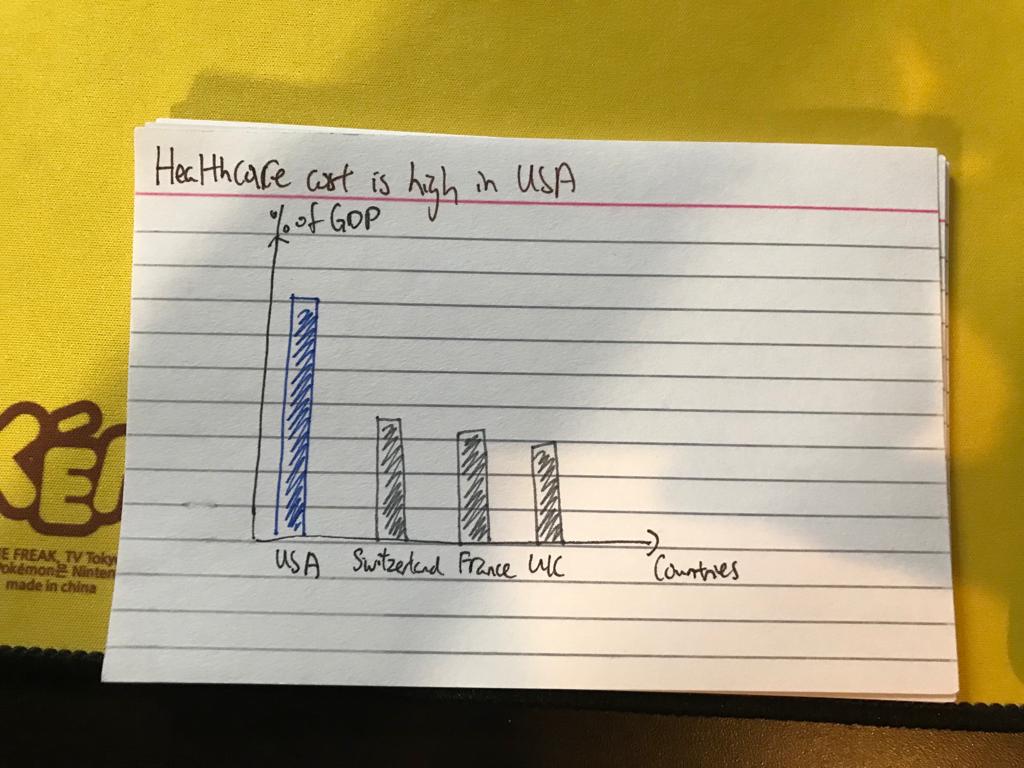 Healthcare cost is high in USA
% of GDP
USA Switzerland France UK
Countries
KÉ
FREAK, TV Toky
Pokémon은 Ninten
made in china